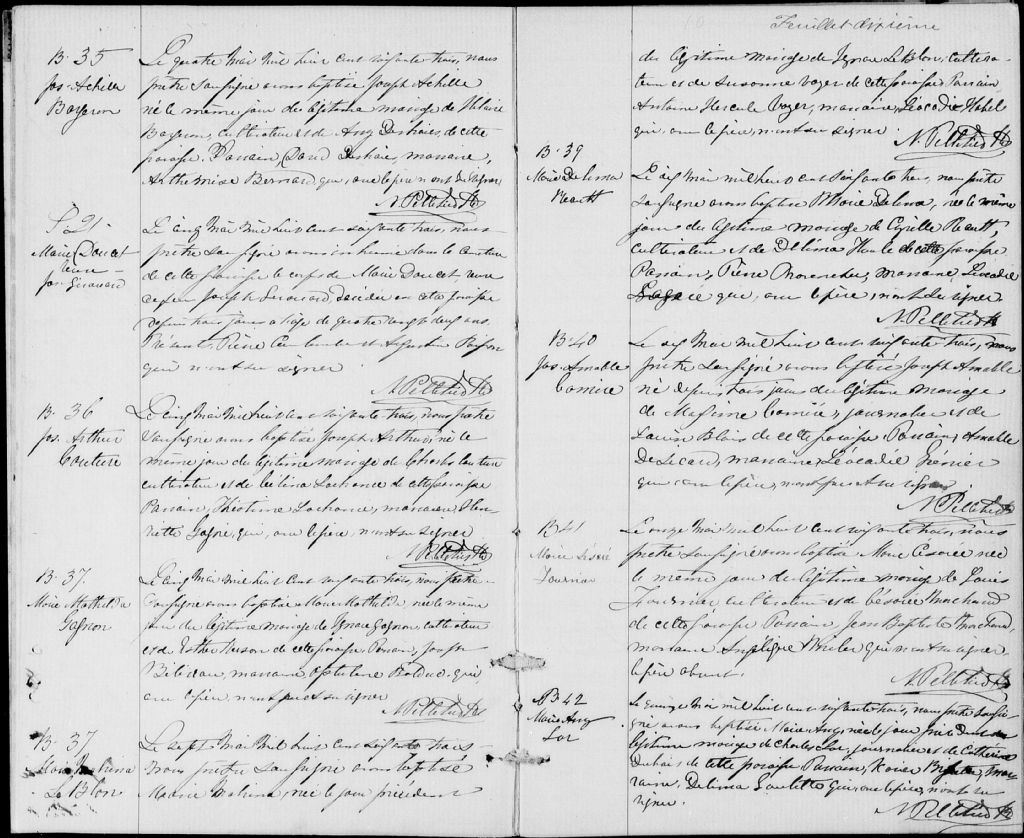 B. 35
Jos. Achille
Bergeron
Le quatre Mai Mil huit cent soixante trois, nous
prêtre soussigné avons baptisé Joseph Achille
né le même jour du légitime mariage de Hilaire
Bergeron, cultivateur et de Amy Deshaies, de cette
paroisse. Parrain, David Deshaie, marraine,
Arthemise Bernard, qui, avec le père n'ont su signer
N. Pelletier Ptre
S. 21
Marie Doucet
veuve
Jos. Girouard
Le cinq Mai Mil huit cent soixante trois, nous
prêtre soussigné avons inhumé dans le cimetière
de cette paroisse le corps de Marie Doucet, veuve
de feu Joseph Girouard, décédée en cette paroisse
depuis trois jours à l'âge de quatre vingt deux ans.
Présents, Pierre et Augustin
qui n'ont su signer
N. Pelletier Ptre
B. 36
Jos. Arthur
Couture
Le cinq Mai Mil huit cent soixante trois, nous prêtre
soussigné avons baptisé Joseph Arthur, né le
même jour du légitime mariage de Charles Couture
cultivateur et de Célina Lachance de cette paroisse
Parrain, Théotime Lachance, marraine, Hen-
riette Gagné, qui, avec le père, n'ont su signer
N. Pelletier Ptre
B. 37.
Marie Mathilda
Gagnon
Le cinq Mai Mil huit cent soixante trois, nous prêtre
soussigné avons baptisé Marie Mathilda, née le même
jour du légitime mariage de Ignace Gagnon, cultivateur
et de Esther de cette paroisse. Parrain, Joseph
Bilodeau, marraine, Bolduc, qui
avec le père, n'ont su signer
N. Pelletier Ptre
B. 37
Marie
Le Blon
Le sept Mai Mil huit cent soixante trois
nous prêtre soussigné avons baptisé
Marie née le jour précédent
Feuillet dixième
du légitime mariage de Ignace LeBlon, cultiva-
teur et de Susanne Voyer de cette paroisse, Parrain
Antoine Hercule Voyer, marraine, Léocadie
qui, avec le père, n'ont su signer.
N. Pelletier Ptre
B. 39
Marie Delima
Heautt
Le six Mai mil huit cent soixante trois, nous prêtre
soussigné avons baptisé Marie Delima, née le même
jour du légitime mariage de Cyrille Heautt,
cultivateur et de Delima de cette paroisse
Parrain, Pierre marraine, Léocadie
qui, avec le père, n'ont su signer
N. Pelletier Ptre
B. 40
Jos. Amable
Comire
Le six Mai Mil huit cent soixante trois, nous
prêtre soussigné avons baptisé Joseph Amable
né depuis trois jours du légitime mariage
de Maxime Comire, journalier et de
Blais de cette paroisse. Parrain, Amable
marraine, Léocadie
qui, avec le père, n'ont pas su signer
N. Pelletier Ptre
B. 41
Marie Desiré
Fournier
Le onze Mai mil huit cent soixante trois, nous
prêtre soussigné avons baptisé Marie née
le même jour du légitime mariage de Louis
Fournier cultivateur et de Marchand
de cette paroisse Parrain, Jean Baptiste Marchand,
marraine, qui n'ont su signer
le père absent.
N. Pelletier Ptre
B. 42
Marie Amy
Le quinze Mai mil huit cent soixante trois, nous prêtre soussi-
gné avons baptisé Marie Amy, née le jour précédent du
légitime mariage de Charles journalier et de Catherine
Dubois de cette paroisse Parrain, Xavier mar-
raine, Delima qui, avec le père, n'ont su
signer.
N. Pelletier Ptre